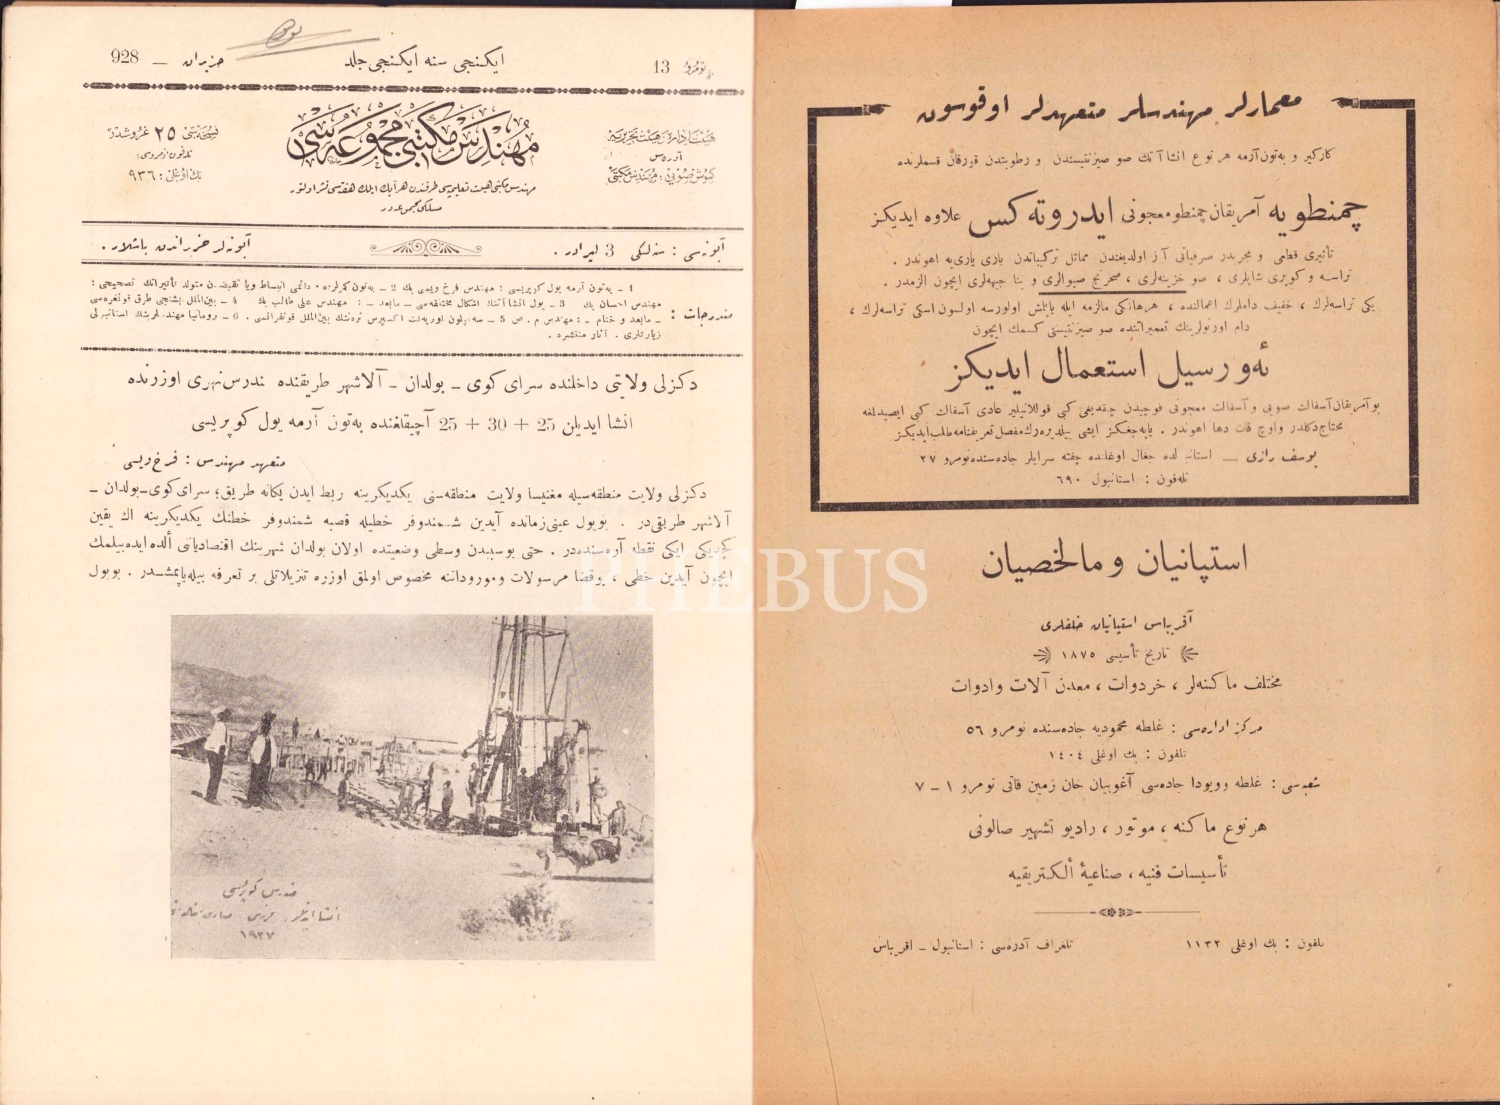 نومرو 13
ايكنجى سنه ايكنجى جلد
حزيران — 928
هيئت اداره، هيئت تحريريه
آدره‌س
كوموش صويى: مهندس مكتبى
مهندس مكتبى مجموعه‌سى
مهندس مكتبى هيئت تعليميه‌سى طرفندن هر آيك ايلك هفته‌سى نشر اولنور
مسلكى مجموعه‌در
نسخه‌سى ٢٥ غروشدر
تلفون نومروسى:
بك اوغلى: ٩٣٦
آبونه‌سى : سنه‌لكى 3 ليرادر .
آبونه‌لر حزيراندن باشلار .
مندرجات :
1 ـ به‌تون آرمه يول كوپريسى : مهندس فرخ ويسى بك 2 ـ به‌تون كمرلرده دائمى انبساط ويا تقبضدن متولد تأثيراتك تصحيحى :
مهندس احسان بك 3 ـ يول انشاآتنك اشكال مختلفه‌سى ـ مابعد ـ : مهندس على طالب بك 4 ـ بين‌الملل بشنجى طرق قونغره‌سى
ـ مابعد و ختام ـ : مهندس م . ص 5 ـ سه‌نپلون اوريه‌نت اكسپرس ترنينك بين‌الملل قونفرانسى . 6 ـ رومانيا مهندسلرينك استانبولى
زيارتلرى . آثار منتشره .
دكزلى ولايتى داخلنده سراى كوى ـ بولدان ـ آلاشهر طريقنده مندرس نهرى اوزرنده
انشا ايديلن 25 + 30 + 25 آچيقلغنده به‌تون آرمه يول كوپريسى
متعهد مهندس : فرخ ويسى
دكزلى ولايت منطقه‌سيله مغنيسا ولايت منطقه‌سنى يكديكرينه ربط ايدن يكانه طريق؛ سراى كوى ـ بولدان ـ
آلاشهر طريقى‌در . بويول عينى زمانده آيدين شمندوفر خطيله قصبه شمندوفر خطنك يكديكرينه اك يقين
كچديكى ايكى نقطه آره‌سنده‌در . حتى بوسببدن وسطى وضعيتده اولان بولدان شهرينك اقتصادياتنى ألده ايده‌بيلمك
ايچون آيدين خطى ، بوقضا مرسولات ومورودانه مخصوص اولمق اوزره تنزيلاتلى بر تعرفه بيله ياپمشدر . بويول
مندرس كوپريسى
١٩٢٧
PHEBUS
معمارلر مهندسلر متعهدلر اوقوسون
كاركير و به‌تون آرمه هر نوع انشاآتك صو صيزنتيسندن و رطوبتدن قورقان قسملرنده
چمنطويه آمريقان چمنطو معجونى ايدروته‌كس علاوه ايديكز
تأثيرى قطعى و مجربدر صرفياتى آز اولديغندن مماثل تركيباتدن يارى يارى‌يه اهوندر .
تراسه و كوپرى شاپلرى ، صو خزينه‌لرى ، صحرنج صيوالرى و بنا جبهه‌لرى ايچون الزمدر .
يكى تراسه‌لرك ، خفيف داملرك اعمالنده ، هرهانكى مالزمه ايله ياپلمش اولورسه اولسون اسكى تراسه‌لرك ،
دام اورتولرينك تعميراتنده صو صيزنتيسنى كسمك ايچون
ئه‌ورسيل استعمال ايديكز
بو آمريقان آسفالت صويى و آسفالت معجونى فوچيدن چقديغى كبى قوللانيلير عادى آسفالت كبى ايصيدلمغه
محتاج دكلدر واوچ قات دها اهوندر . ياپه‌جغكز ايشى بيلديره‌رك مفصل تعريفنامه طلب ايديكز
يوسف رازى — استانبولده جغال اوغلنده چفته سرايلر جاده‌سنده نومرو ٢٧
تله‌فون : استانبول ٦٩٠
استپانيان ومالخصيان
آقرپاس استپانيان خلفلرى
تاريخ تأسيسى ١٨٧٥
مختلف ماكنه‌لر ، خردوات ، معدن آلات وادوات
مركز اداره‌سى : غلطه محموديه جاده‌سنده نومرو ٥٦
تلفون : بك اوغلى ١٤٠٤
شعبه‌سى : غلطه وويودا جاده‌سى آغوپيان خان زمين قاتى نومرو ١ ـ ٧
هرنوع ماكنه ، موتور ، راديو تشهير صالونى
تأسيسات فنيه ، صناعيهٔ ألكتريقيه
تلفون : بك اوغلى ١١٣٢
تلغراف آدره‌سى : استانبول ـ اقرپاس